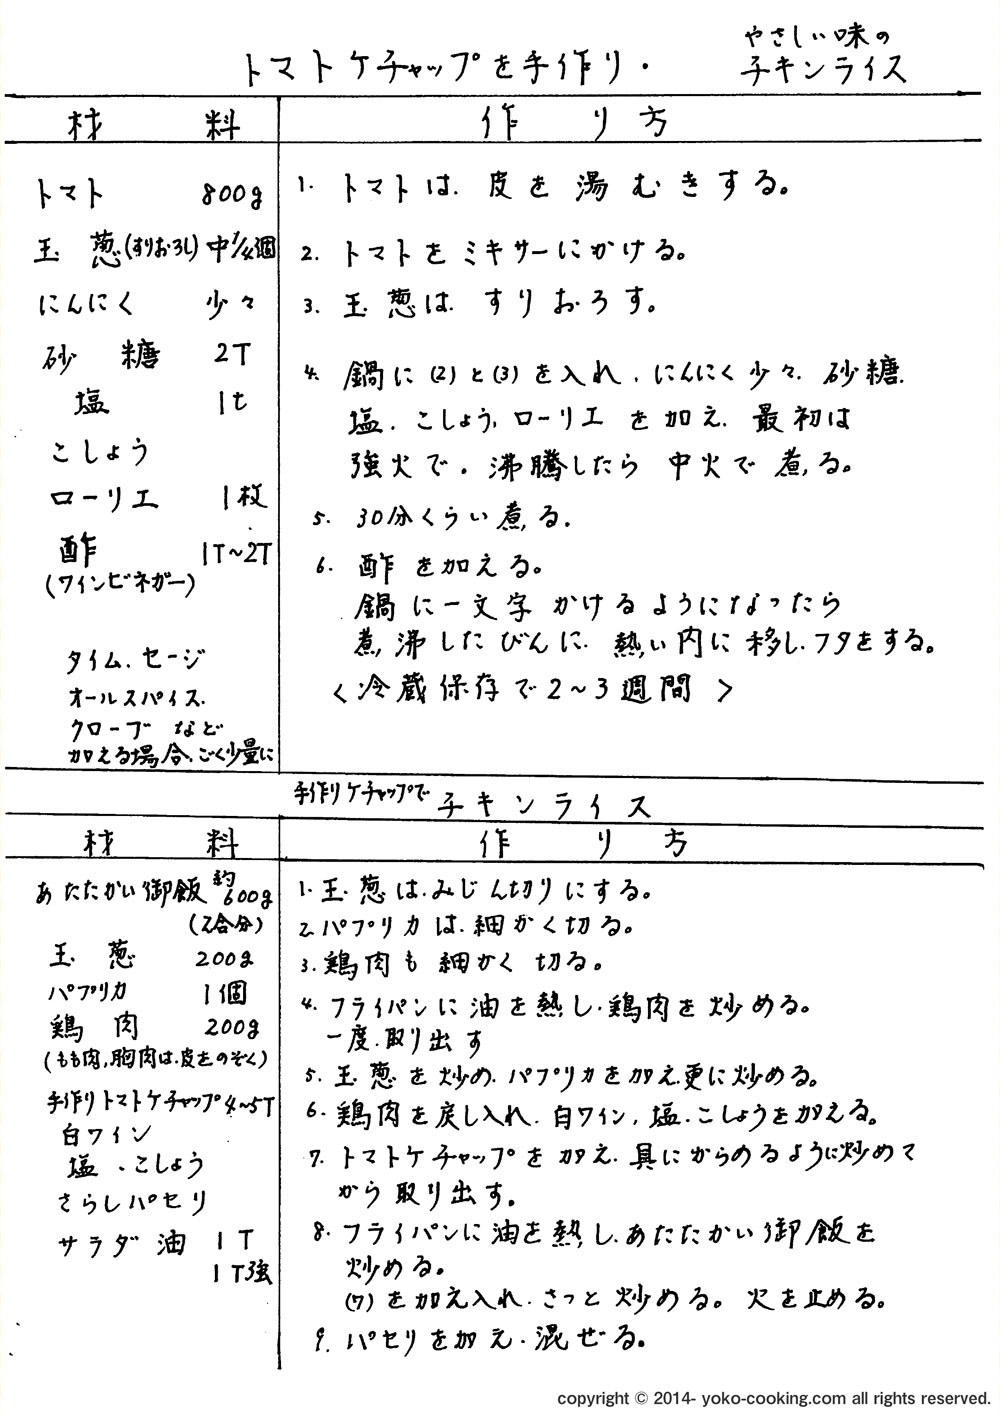 トマトケチャップを手作り・
やさしい味の
チキンライス
材　料
作　り　方
トマト　800g
玉葱(すりおろし)中1/4個
にんにく　少々
砂糖　2T
塩　1t
こしょう
ローリエ　1枚
酢　1T〜2T
(ワインビネガー)
タイム、セージ
オールスパイス、
クローブ など
加える場合、ごく少量に
1. トマトは、皮を湯むきする。
2. トマトをミキサーにかける。
3. 玉葱は、すりおろす。
4. 鍋に(2)と(3)を入れ、にんにく少々、砂糖、
塩、こしょう、ローリエを加え、最初は
強火で。沸騰したら中火で煮る。
5. 30分くらい煮る。
6. 酢を加える。
鍋に一文字かけるようになったら
煮沸したびんに、熱い内に移し、フタをする。
<冷蔵保存で2〜3週間>
手作りケチャップで チキンライス
材　料
作　り　方
あたたかい御飯 約600g
(2合分)
玉葱　200g
パプリカ　1個
鶏肉　200g
(もも肉、胸肉は、皮をのぞく)
手作りトマトケチャップ4〜5T
白ワイン
塩、こしょう
さらしパセリ
サラダ油　1T
1T強
1. 玉葱は、みじん切りにする。
2. パプリカは、細かく切る。
3. 鶏肉も細かく切る。
4. フライパンに油を熱し、鶏肉を炒める。
一度、取り出す
5. 玉葱を炒め、パプリカを加え、更に炒める。
6. 鶏肉を戻し入れ、白ワイン、塩、こしょうを加える。
7. トマトケチャップを加え、具にからめるように炒めて
から取り出す。
8. フライパンに油を熱し、あたたかい御飯を
炒める。
(7)を加え入れ、さっと炒める。火を止める。
9. パセリを加え、混ぜる。
copyright © 2014- yoko-cooking.com all rights reserved.